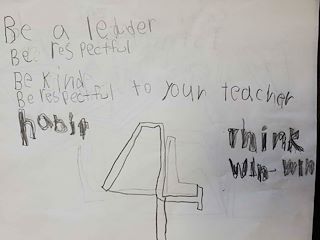 Be a leader
Be respectful
Be kind
Be respectful to your teacher
habit 4
think
win-win